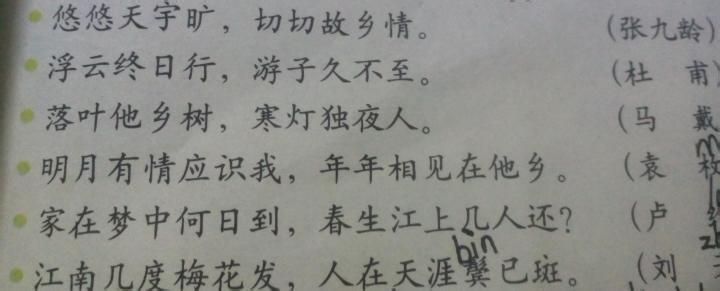 悠悠天宇旷，切切故乡情。 (张九龄)
浮云终日行，游子久不至。 (杜 甫)
落叶他乡树，寒灯独夜人。 (马 戴
明月有情应识我，年年相见在他乡。 (袁 枚
家在梦中何日到，春生江上几人还? (卢
bìn
江南几度梅花发，人在天涯鬓已斑。 (刘